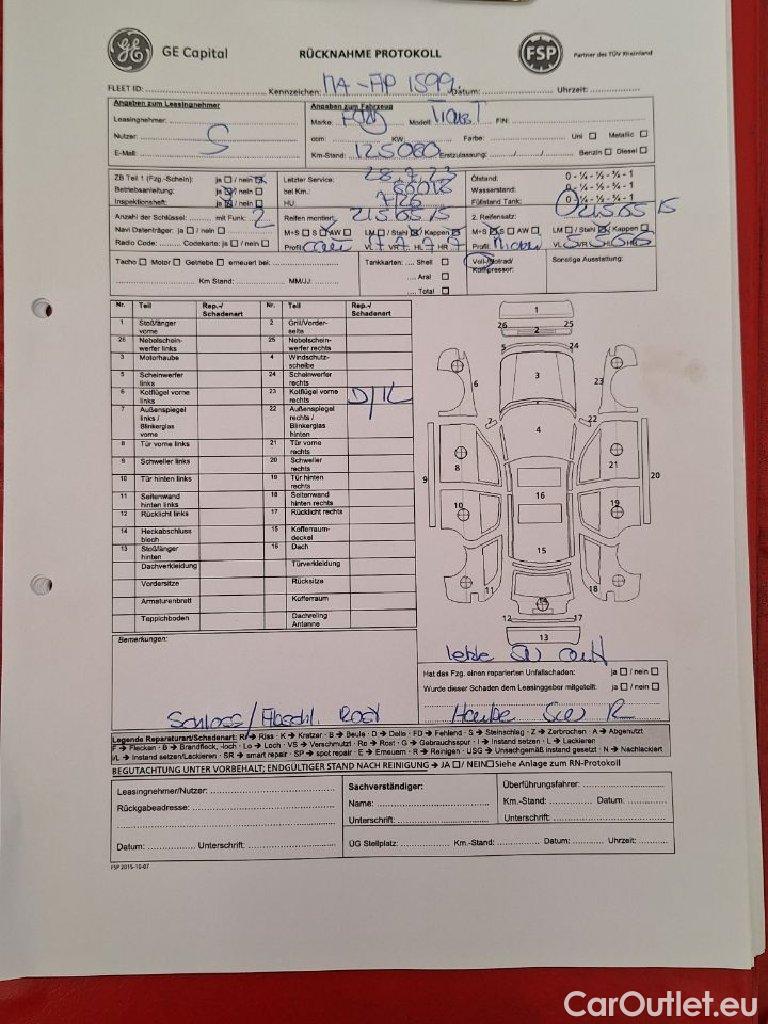 GE Capital
RÜCKNAHME PROTOKOLL
FSP
Partner des TÜV Rheinland
FLEET ID: Kennzeichen: MA-AP 1599 Datum: Uhrzeit:
Angaben zum Leasingnehmer
Leasingnehmer:
Nutzer:
E-Mail:
Angaben zum Fahrzeug
Marke: Ford Modell: FIN:
ccm: KW: Farbe: Uni Metallic
Km-Stand: 125080 Erstzulassung: Benzin Diesel
ZB Teil 1 (Fzg.-Schein): ja / nein
Betriebsanleitung: ja / nein
Inspektionsheft: ja / nein
Letzter Service: 28.7.23
bei Km.:
HU: 7/26
Ölstand: 0 - ¼ - ½ - ¾ - 1
Wasserstand: - ¼ - ½ - ¾ - 1
Füllstand Tank: 0 - ¼ - ½ - ¾ - 1
Anzahl der Schlüssel: mit Funk: 2
Navi Datenträger: ja / nein
Radio Code: Codekarte: ja / nein
Reifen montiert: 215 65 15
M+S S AW LM / Stahl Kappen
Profil VL 7 VR 7 HL 7 HR 7
2. Reifensatz: 215 65 15
M+S S AW LM / Stahl Kappen
Profil VL 5 VR 5 HL 5 HR 6
Tacho Motor Getriebe erneuert bei:
Km Stand: MM/JJ:
Tankkarten: Shell
Aral
Total
Voll-/Notrad/
Kompressor:
Sonstige Ausstattung:
Nr. Teil Rep.-/ Schadenart Nr. Teil Rep.-/ Schadenart
1 Stoßfänger vorne 2 Grill/Vorder-seite
26 Nebelschein-werfer links 25 Nebelschein-werfer rechts
3 Motorhaube 4 Windschutz-scheibe
5 Scheinwerfer links 24 Scheinwerfer rechts
6 Kotflügel vorne links 23 Kotflügel vorne rechts D/K
7 Außenspiegel links / Blinkerglas vorne 22 Außenspiegel rechts / Blinkerglas hinten
8 Tür vorne links 21 Tür vorne rechts
9 Schweller links 20 Schweller rechts
10 Tür hinten links 19 Tür hinten rechts
11 Seitenwand hinten links 18 Seitenwand hinten rechts
12 Rücklicht links 17 Rücklicht rechts
14 Heckabschluss blech 15 Kofferraum-deckel
13 Stoßfänger hinten 16 Dach
Dachverkleidung Türverkleidung
Vordersitze Rücksitze
Armaturenbrett Kofferraum
Teppichboden Dachreling Antenne
1
26 2 25
5 24
6 3 23
7 4 22
8 21
9 16 20
10 19
15
11 14 18
12 17
13
Bemerkungen:
Schloss/Abschl. Rost
Hat das Fzg. einen reparierten Unfallschaden: ja / nein
Wurde dieser Schaden dem Leasinggeber mitgeteilt: ja / nein
Haube R
Legende Reparaturart/Schadenart: Ri → Riss · K → Kratzer · B → Beule · D → Delle · FD → Fehlend · S → Steinschlag · Z → Zerbrochen · A → Abgenutzt
F → Flecken · B → Brandfleck, -loch · Lo → Loch · VS → Verschmutzt · Ro → Rost · G → Gebrauchsspur · I → Instand setzen · L → Lackieren
I/L → Instand setzen/Lackieren · SR → smart repair · SP → spot repair · E → Erneuern · R → Reinigen · USG → Unsachgemäß instand gesetzt · N → Nachlackiert
BEGUTACHTUNG UNTER VORBEHALT; ENDGÜLTIGER STAND NACH REINIGUNG → JA / NEIN Siehe Anlage zum RN-Protokoll
Leasingnehmer/Nutzer:
Rückgabeadresse:
Datum: Unterschrift:
Sachverständiger:
Name:
Unterschrift:
Überführungsfahrer:
Km.-Stand: Datum:
Unterschrift:
ÜG Stellplatz: Km.-Stand: Datum: Uhrzeit:
FSP 2015-10-07
CarOutlet.eu